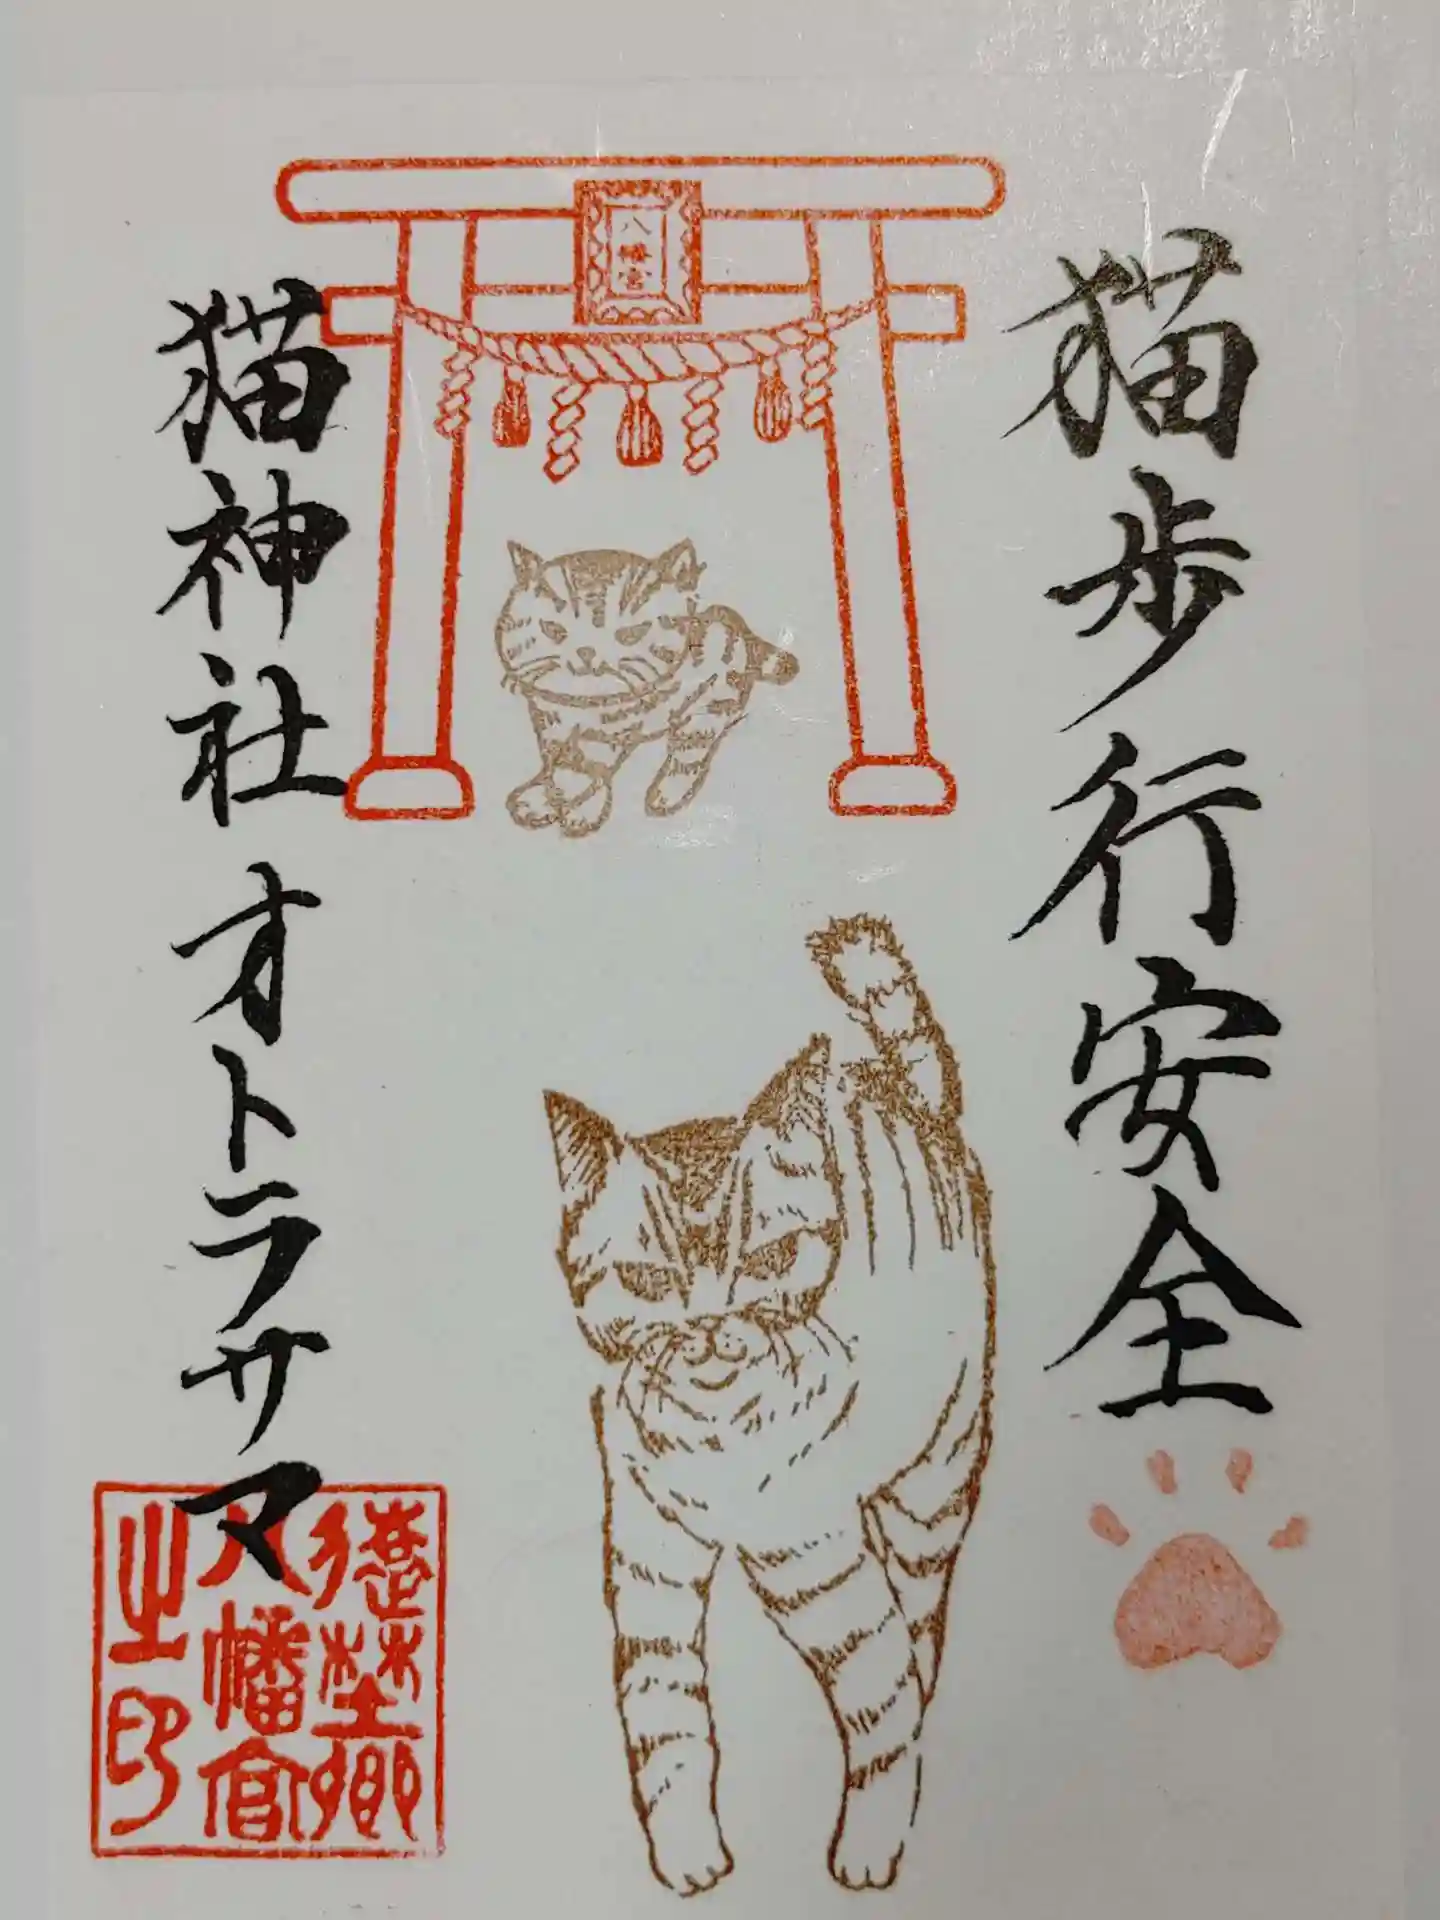 猫歩行安全
八幡宮
猫神社オトラサマ
遠埜郷
八幡宮
之印